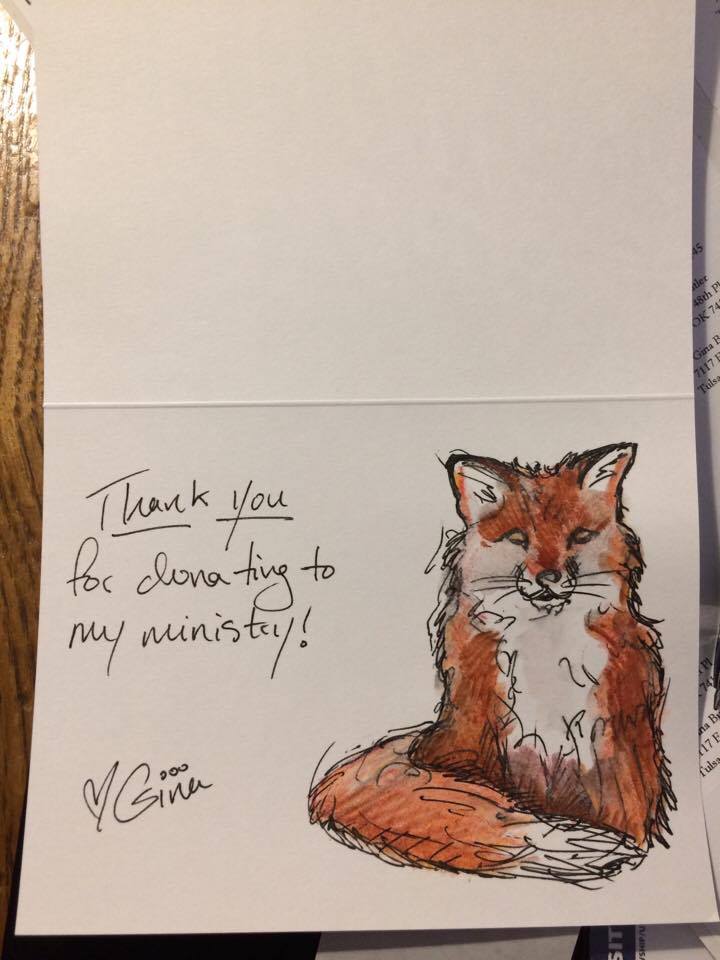 Thank you
for donating to
my ministry!
♡ Gina
45
48th Pl
OK 74
Gina B
7117 E
Tulsa
Tulsa
SIT